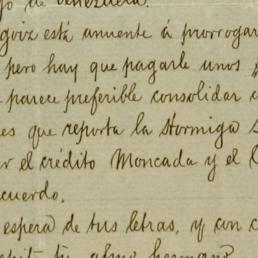 jo de Venezuela.
goix está anuente á prorrogar
pero hay que pagarle unos
parece preferible consolidar
es que reporta la Hormiga
el crédito Moncada y el
cuerdo.
espera de tus letras, y con
tu afmo hermano